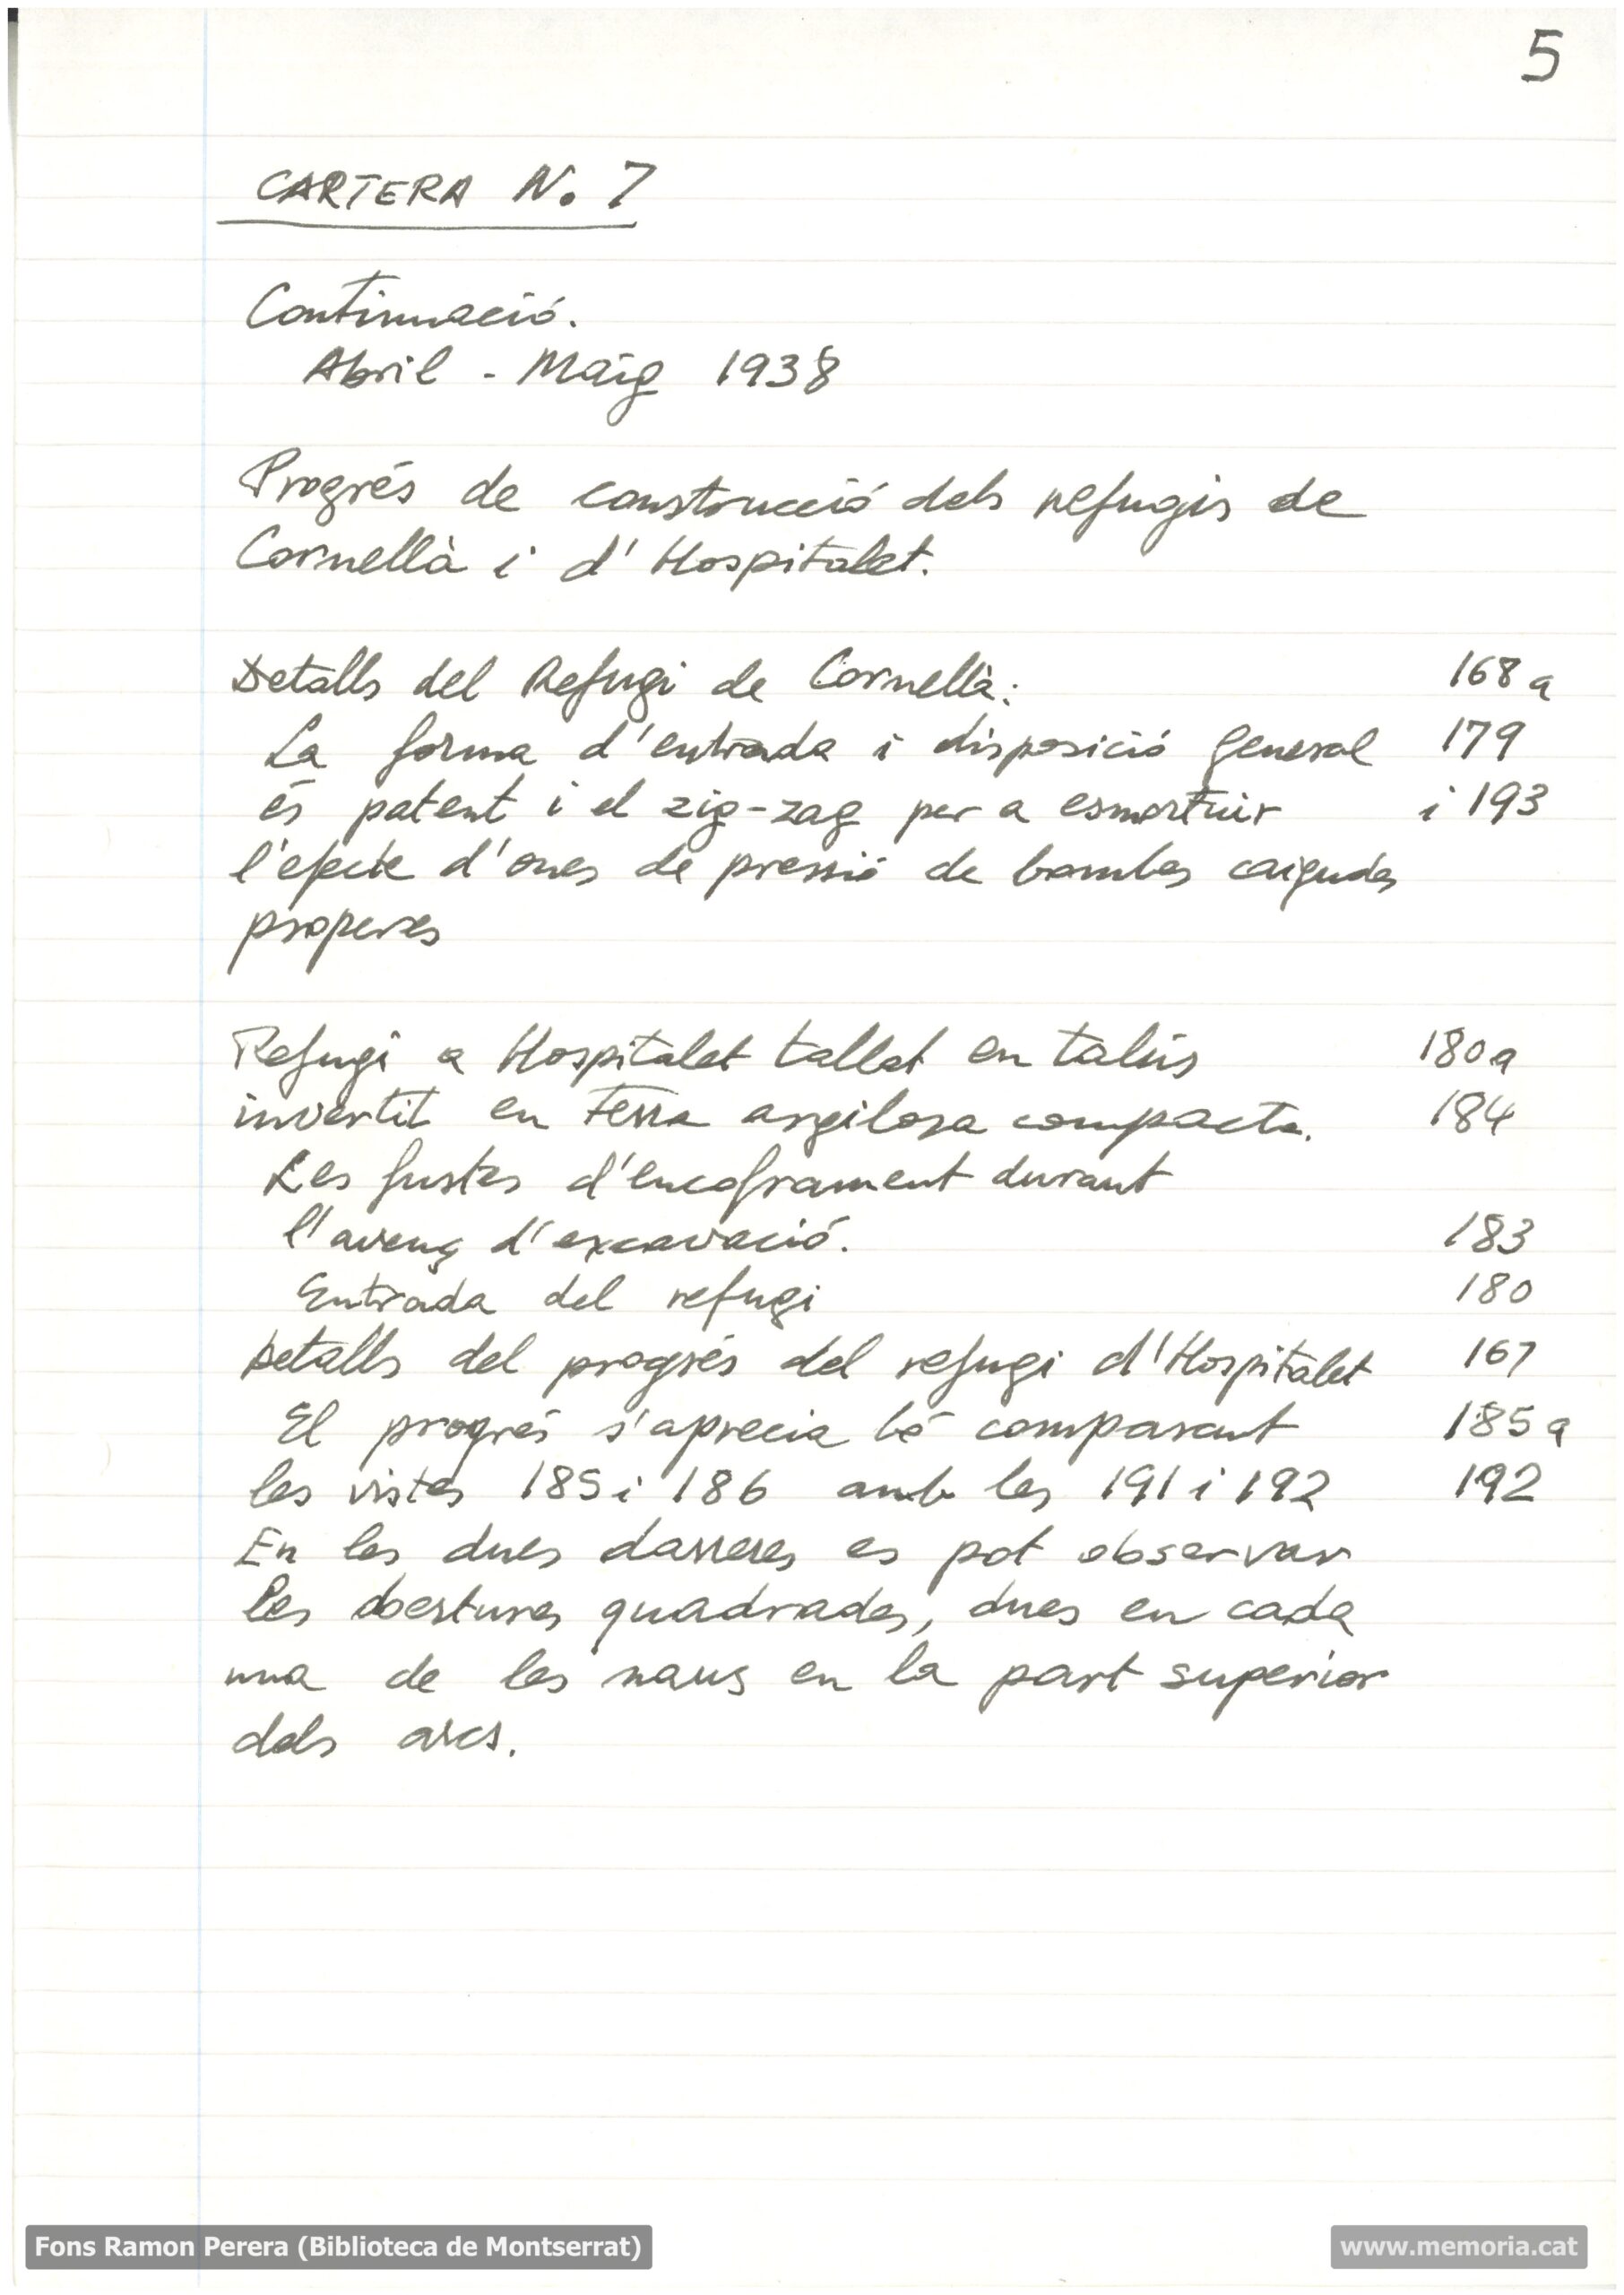 5
CARTERA No. 7
Continuació.
Abril - Maig 1938
Progrés de construcció dels refugis de
Cornellà i d'Hospitalet.
Detalls del Refugi de Cornellà: 168 a
La forma d'entrada i disposició general 179
és patent i el zig-zag per a esmortuir i 193
l'efecte d'ones de pressió de bombes caigudes
properes
Refugi a Hospitalet tallat en talús 180 a
invertit en terra argilosa compacta. 184
Les fustes d'encoframent durant
l'avenç d'excavació. 183
Entrada del refugi 180
Detalls del progrés del refugi d'Hospitalet 167
El progrés s'aprecia bé comparant 185 a
les vistes 185 i 186 amb les 191 i 192 192
En les dues darreres es pot observar
les obertures quadrades, dues en cada
una de les naus en la part superior
dels arcs.
Fons Ramon Perera (Biblioteca de Montserrat)
www.memoria.cat